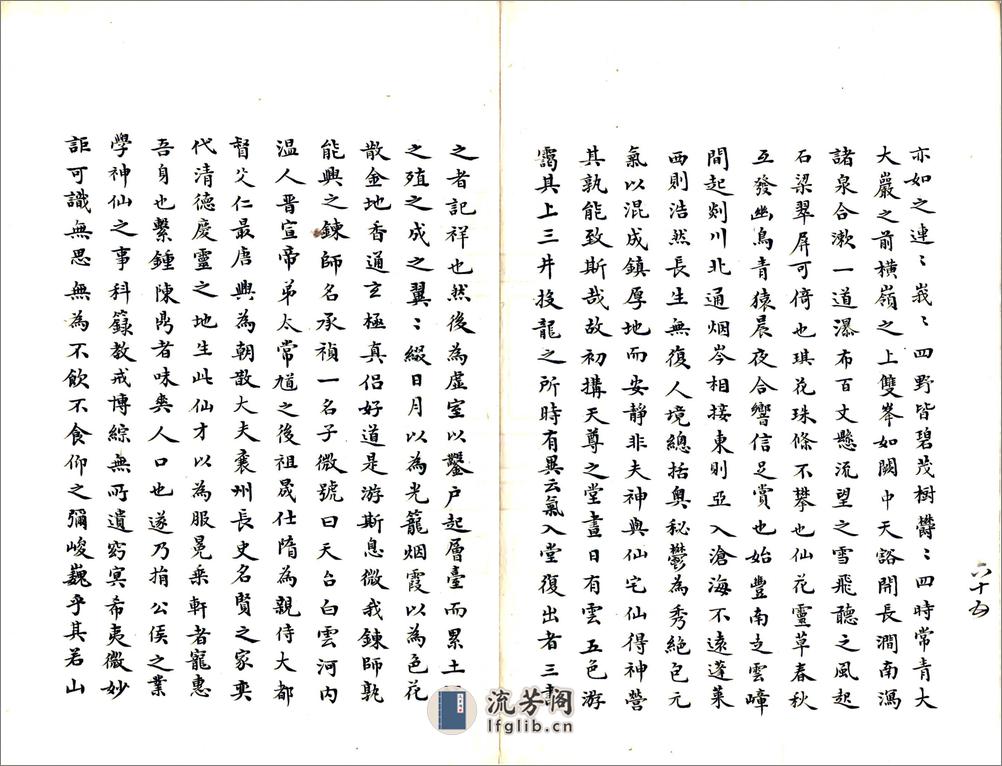 六十五
亦如之連〻峩〻四野皆碧茂樹欝〻四時常青大
大巖之前横嶺之上雙峯如闕中天豁開長澗南瀉
諸泉合漱一道瀑布百丈懸流望之雪飛聽之風起
石梁翠屏可倚也琪花珠條不攀也仙花靈草春秋
互發幽鳥青猿晨夜合響信足賞也始豐南支雲嶂
間起剡川北通烟岑相接東則亞入滄海不遠蓬萊
西則浩然長生無復人境總括奥秘鬱為秀絕包元
氣以混成鎮厚地而安靜非夫神與仙宅仙得神營
其孰能致斯哉故初搆天尊之堂晝日有雲五色游
靄其上三井投龍之所時有異云氣入堂復出者三書
之者記祥也然後為虛室以鑿户起層臺而累土
之殖之成之翼〻綴日月以為光籠烟霞以為色花
散金地香通玄極真侶好道是游斯息微我鍊師孰
能興之鍊師名承禎一名子微號曰天台白雲河内
温人晉宣帝弟太常馗之後祖晟仕隋為親侍大都
督父仁最唐興為朝散大夫襄州長史名賢之家奕
代清德慶靈之地生此仙才以為服冕乘軒者寵惠
吾身也繫鍾陳鼎者味爽人口也遂乃捐公侯之業
學神仙之事科籙教戒博綜無所遺窈冥希夷微妙
詎可識無思無為不飲不食仰之彌峻巍乎其若山
流芳阁
lfglib.cn